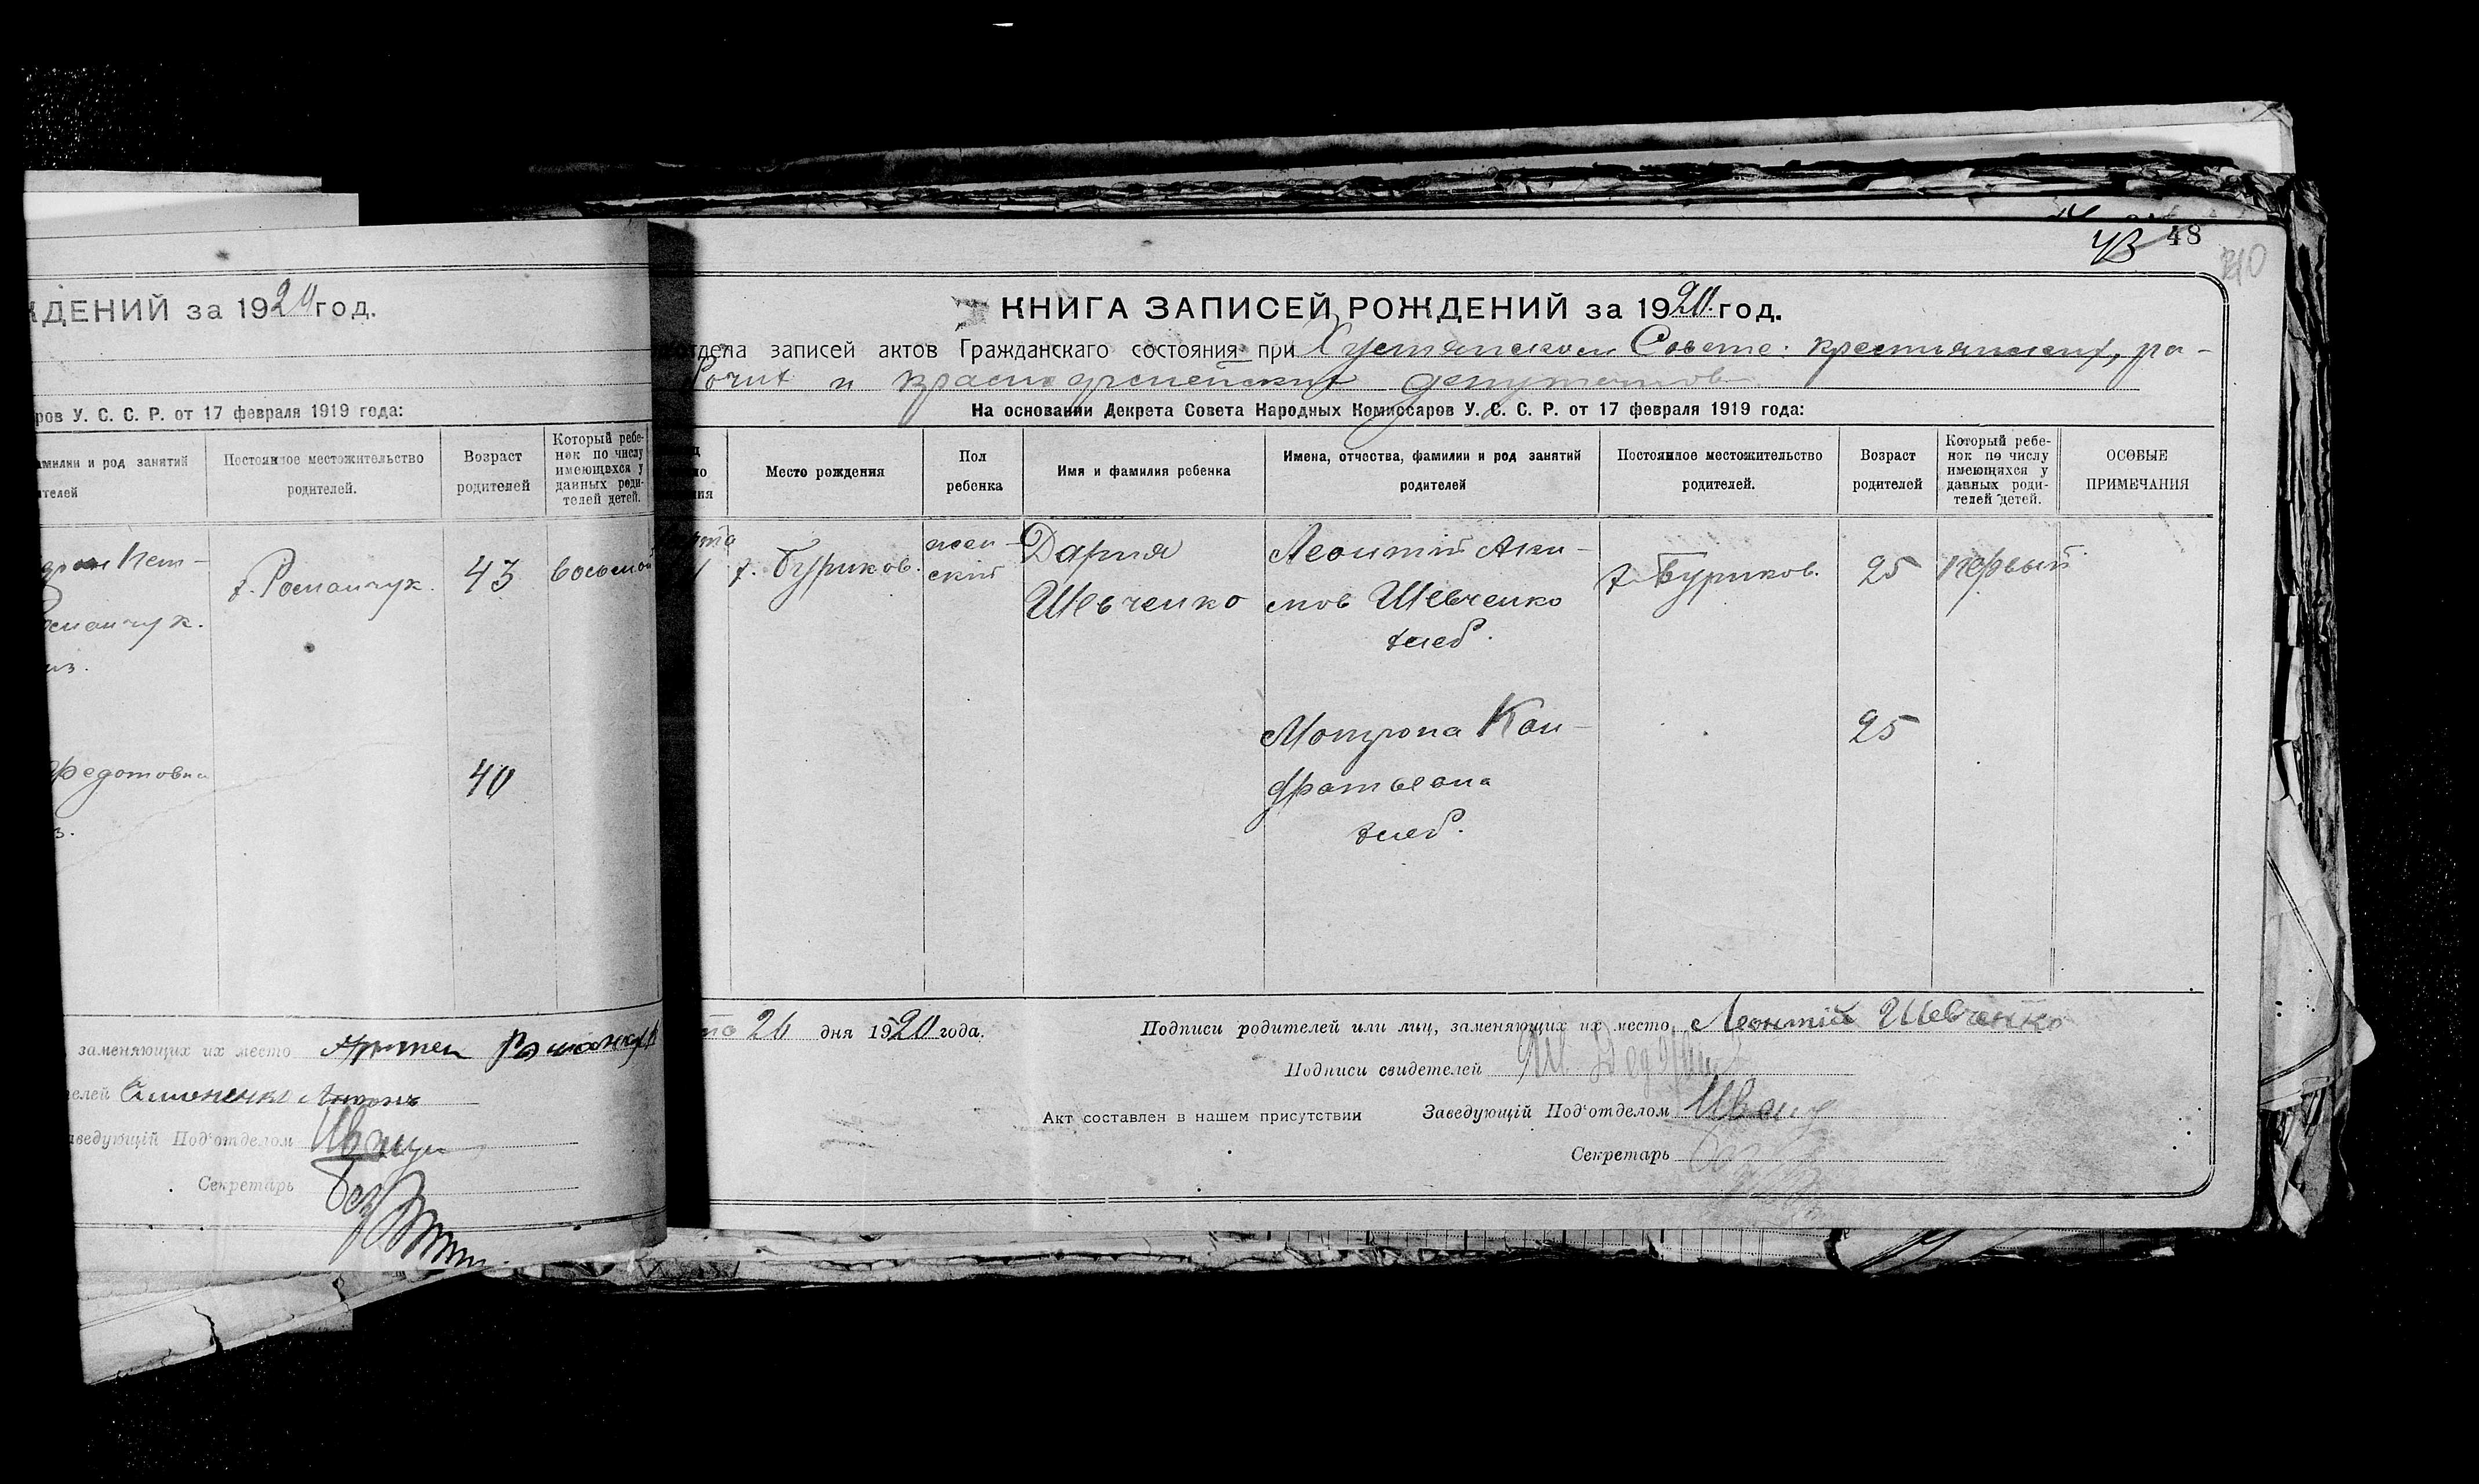 ЖДЕНИЙ за 1920 год.
ров У. С. С. Р. от 17 февраля 1919 года:
амилии и род занятий
ителей
Постоянное местожительство
родителей.
Возраст
родителей
Который ребе-
нок по числу
имеющихся у
данных роди-
телей детей.
Пет-
х. Романчук.
43
восьмой
Романчук.
Федотовна
40
заменяющих их место Артем Романчук
телей Симоненко Антонъ
аведующій Под'отделом Иващ
Секретарь
43 48
КНИГА ЗАПИСЕЙ РОЖДЕНИЙ за 1920 год.
отдела записей актов Гражданскаго состояния при Хустянском Совете крестьянских, ра-
бочих и красноармейских депутатов
На основании Декрета Совета Народных Комиссаров У. С. С. Р. от 17 февраля 1919 года:
Место рождения
Пол
ребенка
Имя и фамилия ребенка
Имена, отчества, фамилии и род занятий
родителей
Постоянное местожительство
родителей.
Возраст
родителей
Который ребе-
нок по числу
имеющихся у
данных роди-
телей детей.
ОСОБЫЕ
ПРИМЕЧАНИЯ
марта
х. Буриков.
жен-
ский
Дария
Шевченко
Леонтий Аки-
мов Шевченко
хлеб.
х. Буриков.
25
первый
Мотрона Кон-
дратьевна
хлеб.
25
та 26 дня 1920 года.
Подписи родителей или лиц, заменяющих их место Леонтій Шевченко
Подписи свидетелей
Акт составлен в нашем присутствии Заведующій Под'отделом Иващ
Секретарь